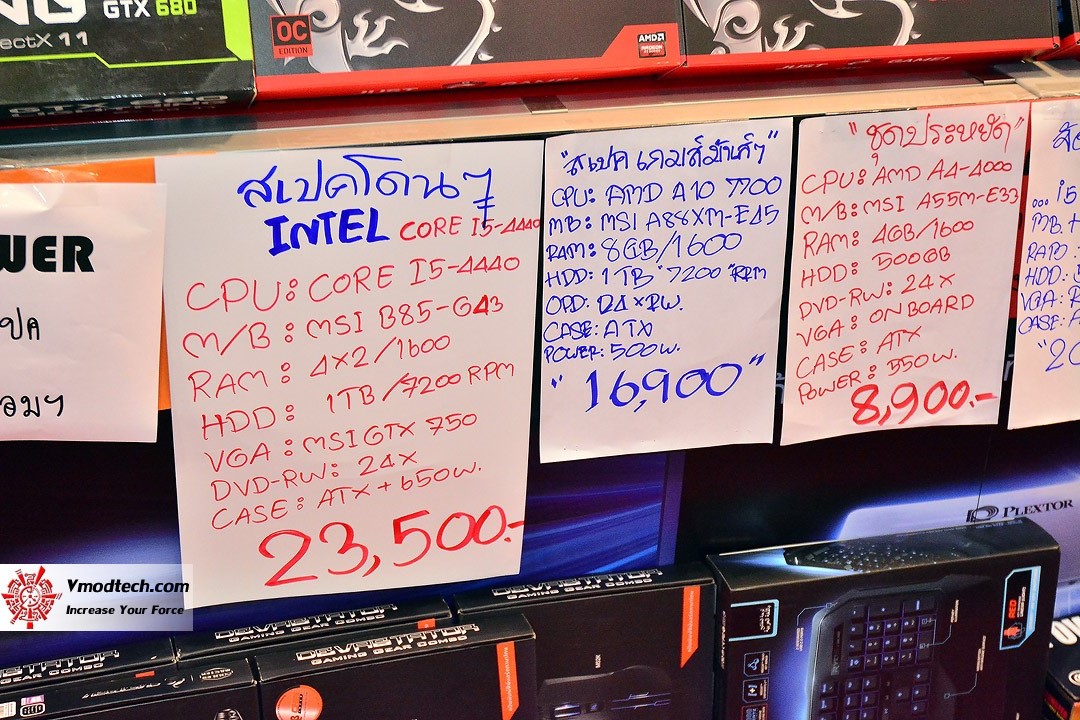 GTX 680
ectX 11
OC
EDITION
AMD
RADEON
JUST GAME!
JUST GAME!
WER
สเปคโดนๆ
INTEL CORE I5-4440
CPU: CORE I5-4440
M/B: MSI B85-G43
RAM: 4X2/1600
HDD: 1TB/7200 RPM
VGA: MSI GTX 750
DVD-RW: 24X
CASE: ATX + 650W.
23,500.-
"สเปคเกมส์มันส์ๆ"
CPU: AMD A10 7700
MB: MSI A88XM-E45
RAM: 8GB/1600
HDD: 1TB 7200 RPM
OPD: 24XRW.
CASE: ATX
POWER: 500W.
"16,900"
"ชุดประหยัด"
CPU: AMD A4-4000
M/B: MSI A55M-E33
RAM: 4GB/1600
HDD: 500GB
DVD-RW: 24X
VGA: ONBOARD
CASE: ATX
POWER: 550W.
8,900.-
... i5
MB.+
HDD:
VGA:
CASE: A
"20
PLEXTOR
Vmodtech.com
Increase Your Force
DEVASTATOR
GAMING GEAR COMBO
DEVASTATOR
GAMING GEAR COMBO
DEVASTATOR
GAMING GEAR COMBO
DEVASTATOR
GAMING GEAR COMBO
RED